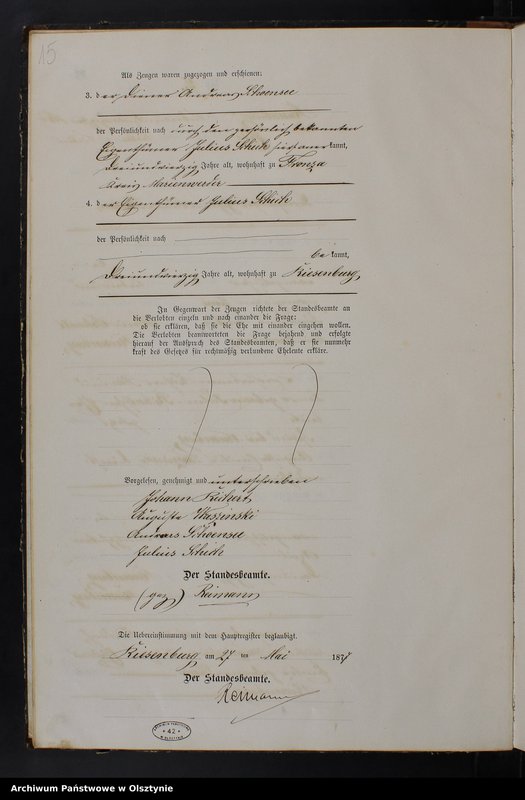 15
Als Zeugen waren zugezogen und erschienen:
3. der Diener Andreas Schoensee
der Persönlichkeit nach durch den persönlich bekannten
Eigenthümer Julius Schich kannt,
dreiundvierzig Jahre alt, wohnhaft zu
Kreis Marienwerder
4. der Eigenthümer Julius Schich
der Persönlichkeit nach
bekannt,
dreiundvierzig Jahre alt, wohnhaft zu Riesenburg
In Gegenwart der Zeugen richtete der Standesbeamte an
die Verlobten einzeln und nach einander die Frage:
ob sie erklären, daß sie die Ehe mit einander eingehen wollen.
Die Verlobten beantworteten die Frage bejahend und erfolgte
hierauf der Ausspruch des Standesbeamten, daß er sie nunmehr
kraft des Gesetzes für rechtmäßig verbundene Eheleute erkläre.
Vorgelesen, genehmigt und unterschrieben
Johann
Auguste
Andreas Schoensee
Julius Schich
Der Standesbeamte.
(gez) Reimann
Die Uebereinstimmung mit dem Hauptregister beglaubigt.
Riesenburg am 27 ten Mai 187
Der Standesbeamte.
Reimann
* 42 *
Archiwum Państwowe w Olsztynie